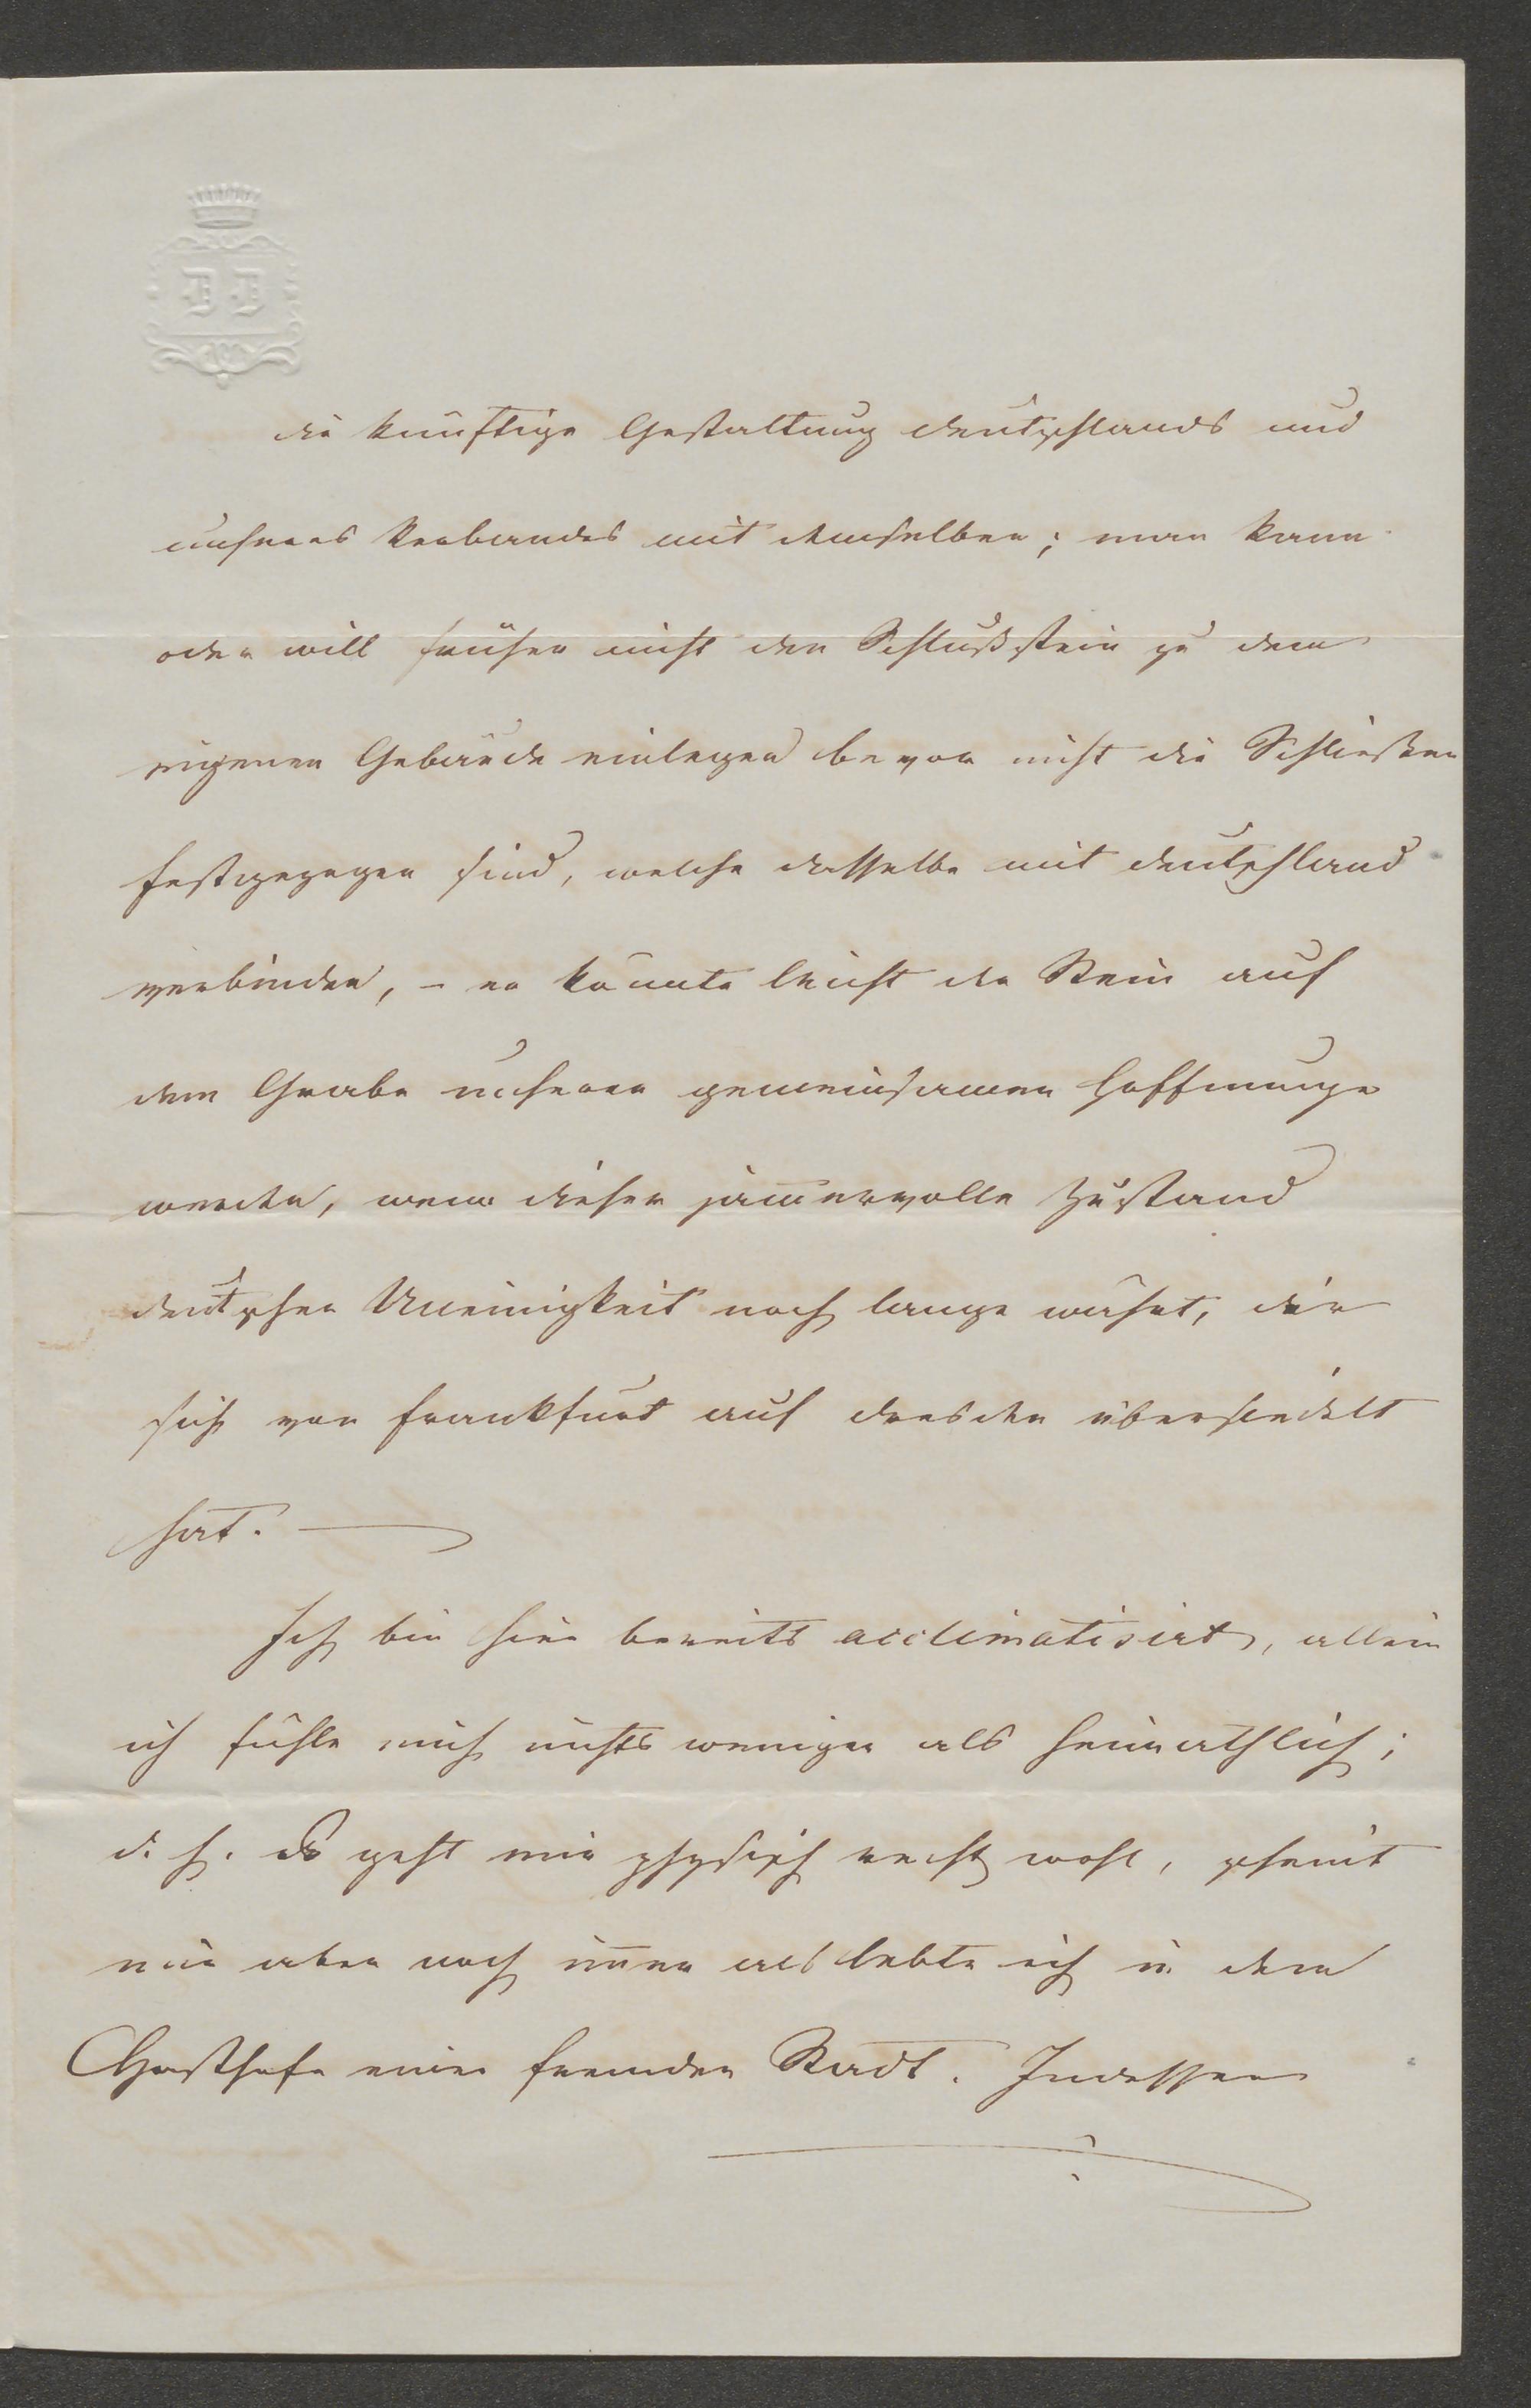 die künftige Gestaltung Deutschlands und
unseres Verbandes mit demselben; man kann
oder will früher nicht den Schlußstein zu dem
eigenen Gebäude einlegen bevor nicht die Schließen
festgezogen sind, welche dasselbe mit Deutschland
verbinden, – er könnte leicht der Stein auf
dem Grabe unserer gemeinsamen Hoffnunge
werden, wenn dieser jam̄ervolle Zustand
deutscher Uneinigkeit noch lange währt, der
sich von Frankfurt auf Dresden übersiedelt
hat. —
Ich bin hier bereits acclimatisirt, allein
ich fühle mich nichts weniger als heimathlich;
d. h. Es geht mir physisch recht wohl, scheint
mir aber noch im̄er als lebte ich in dem
Gasthofe einer fremden Stadt. Indessen